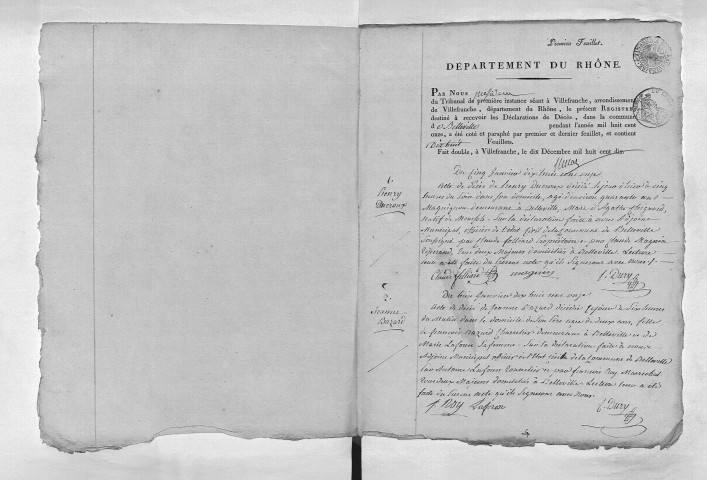 Premier Feuillet.
DÉPARTEMENT DU RHÔNE.
PAR NOUS
du Tribunal de première instance séant à Villefranche, arrondissement
de Villefranche, département du Rhône, le présent REGISTRE
destiné à recevoir les Déclarations de Décès, dans la commune
d e Belleville pendant l'année mil huit cent
onze, a été coté et paraphé par premier et dernier feuillet, et contient
Dix huit Feuillets.
Fait double, à Villefranche, le dix Décembre mil huit cent dix.
1.
henry
Ducroux
Du Cinq Janvier dix huit cent onze
Acte de décès de henry Ducroux décédé le jour d'hier à cinq
heures du soir dans son domicile, agé d'environ quarante ans
demeurant à Belleville, Mari d'Agathe
natif de Sur la déclaration faite à nous Adjoint
Municipal, officier de l'état Civil de la Commune de Belleville
Soussigné par Claude folliard propriétaire et par Claude
tous deux Majeurs domiciliés à Belleville. Lecture
leur a été faite du présent acte qu'ils Signeront avec nous.
Claude folliard C. Dury
2.
Jeanne
Bazard
Du huit Janvier dix huit cent onze
Acte de décès de Jeanne Bazard décédée Ce jour à Six heures
du Matin dans le domicile de Son père agée de deux ans, fille
de francois Bazard Charretier demeurant à Belleville et de
Marie Lafond Sa femme. Sur la déclaration faite à nous
Adjoint Municipal officier de l'état Civil de la Commune de Belleville
par Antoine Lafond Tonnelier et par francois Roy
tous deux Majeurs domiciliés à Belleville. Lecture leur a été
faite du présent acte qu'ils Signeront avec nous.
f. Roy Lafond C. Dury